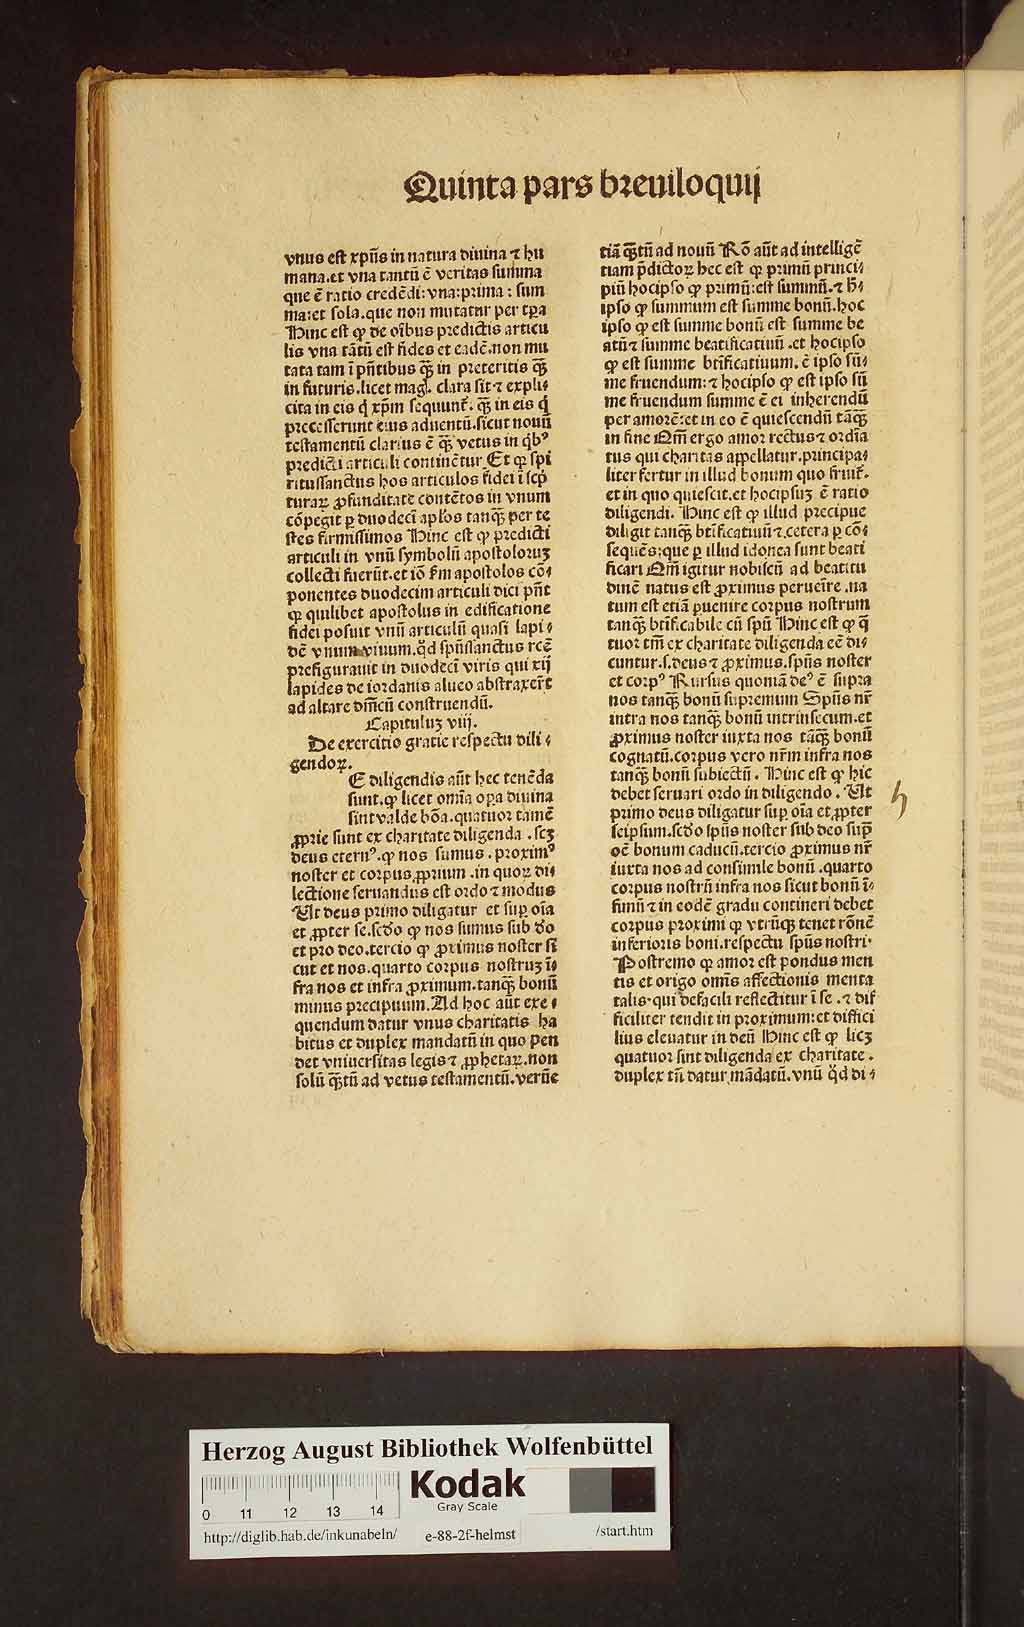 Quinta pars breuiloquij
vnus est xp̄us in natura diuina ⁊ hu
mana.et vna tantū ē veritas summa
que ē ratio credēdi: vna:prima: sum
ma:et sola.que non mutatur per tp̄a
Hinc est ꝙ de oībus predictis articu
lis vna tātū est fides et eadē.non mu
tata tam ī pn̄tibus qꝫ̄ in preteritis qꝫ̄
in futuris.licet magꝭ clara sit ⁊ expli⸗
cita in eis q̇ xp̄m sequunt̄. qꝫ̄ in eis q̇
precesserunt eius aduentū.sicut nouū
testamentū clarius ē qꝫ̄ vetus in qͥbꝰ
predicti articuli continētur Et qꝛ spi
ritussanctus hos articulos fidei ī scͥp
turaꝝ ꝓfunditate contētos in vnum
cōpegit ꝑ duodecī apl̄os tanqꝫ̄ per te
stes firmissimos Hinc est ꝙ predicti
articuli in vnū symbolū apostoloruꝫ
collecti fuerūt.et iō fm apostolos cō⸗
ponentes duodecim articuli dici pn̄t
qꝛ quilibet apostolus in edificatione
fidei posuit vnū articulū quasi lapi⸗
dē vnum viuum.qd̓ spūssanctus rcē
prefigurauit in duodecī viris qui xij
lapides de iordanis alueo abstraxerūt
ad altare dn̄icū construendū.
Capituluꝫ viij.
De exercitio gratie respectu dili⸗
gendoꝝ.
E diligendis aūt hec tenēda
sunt.ꝙ licet omīa opa diuina
sint valde bōa.quatuor tamē
ꝓprie sunt ex charitate diligenda .scꝫ
deus eternꝰ.ꝙ nos sumus. proximꝰ
noster et corpus ꝓprium .in quoꝝ di⸗
lectione seruandus est ordo ⁊ modus
Ut deus primo diligatur et suꝑ oīa
et ꝓpter se.sc̄do ꝙ nos sumus sub do
et pro deo.tercio ꝙ ꝓximus noster si
cut et nos.quarto corpus nostruꝫ ī⸗
fra nos et infra ꝓximum.tanqꝫ̄ bonū
minus precipuum.Ad hoc aūt exe⸗
quendum datur vnus charitatis ha
bitus et duplex mandatū in quo pen
det vniuersitas legis ⁊ ꝓphetaꝝ.non
solū qꝫ̄tū ad vetus testamentū.verūe
tiā qꝫ̄tū ad nouū Rō aūt ad intelligē
tiam p̄dictoꝝ hec est qꝛ primū princi⸗
piū hocipso ꝙ primū:est summū.⁊ h̄⸗
ipso ꝙ summum est summe bonū.hoc
ipso ꝙ est summe bonū est summe be
atū ⁊ summe beatificatiuū .et hocipso
ꝙ est summe btīficatiuum. ē ipso sū⸗
me fruendum:⁊ hocipso ꝙ est ipso sū
me fruendum summe ē ei inherendū
per amorē:et in eo ē quiescendū tāqꝫ̄
in fine Qm̄ ergo amor rectus ⁊ ordīa
tus qui charitas appellatur.principa⸗
liter fertur in illud bonum quo fruit̄.
et in quo quiescit.et hocipsuꝫ ē ratio
diligendi. Hinc est ꝙ illud precipue
diligit tanqꝫ̄ btīficatiuū ⁊.cetera ꝑ cō⸗
sequēs:que ꝑ illud idonea sunt beati
ficari Qm̄ igitur nobiscū ad beatitu
dinē natus est ꝓximus peruenīre .na
tum est etiā ꝑuenire corpus nostrum
tanqꝫ̄ btīficabile cū spū Hinc est ꝙ q̄
tuor tm̄ ex charitate diligenda eē di⸗
cuntur.s.deus ⁊ ꝓximus.spūs noster
et corpꝰ Rursus quoniā deꝰ ē supra
nos tanqꝫ̄ bonū supremum Spūs nr̄
intra nos tanqꝫ̄ bonū intrinsecum.et
ꝓximus noster iuxta nos tāqꝫ̄ bonū
cognatū.corpus vero nr̄m infra nos
tanqꝫ̄ bonū subiectū. Hinc est ꝙ hic
debet seruari ordo in diligendo. Ut
primo deus diligatur suꝑ oīa et ꝓpter
seipsum.sc̄do spūs noster sub deo suꝑ
oē bonum caducū.tercio ꝓximus nr̄
iuxta nos ad consimile bonū .quarto
corpus nostrū infra nos sicut bonū ī⸗
fimū ⁊ in eodē gradu contineri debet
corpus proximi qꝛ vtrūqꝫ tenet rōnē
inferioris boni.respectu spūs nostri.
Postremo qꝛ amor est pondus men
tis et origo omīs affectionis menta
talis.qui defacili reflectitur ī se .⁊ dif
ficiliter tendit in proximum:et diffici
lius eleuatur in deū Hinc est ꝙ licꝫ
quatuor sint diligenda ex charitate .
duplex tn̄ datur mādatū.vnū qd̓ di⸗
Herzog August Bibliothek Wolfenbüttel
Kodak
Gray Scale
0 11 12 13 14
http://diglib.hab.de/inkunabeln/ e-88-2f-helmst /start.htm